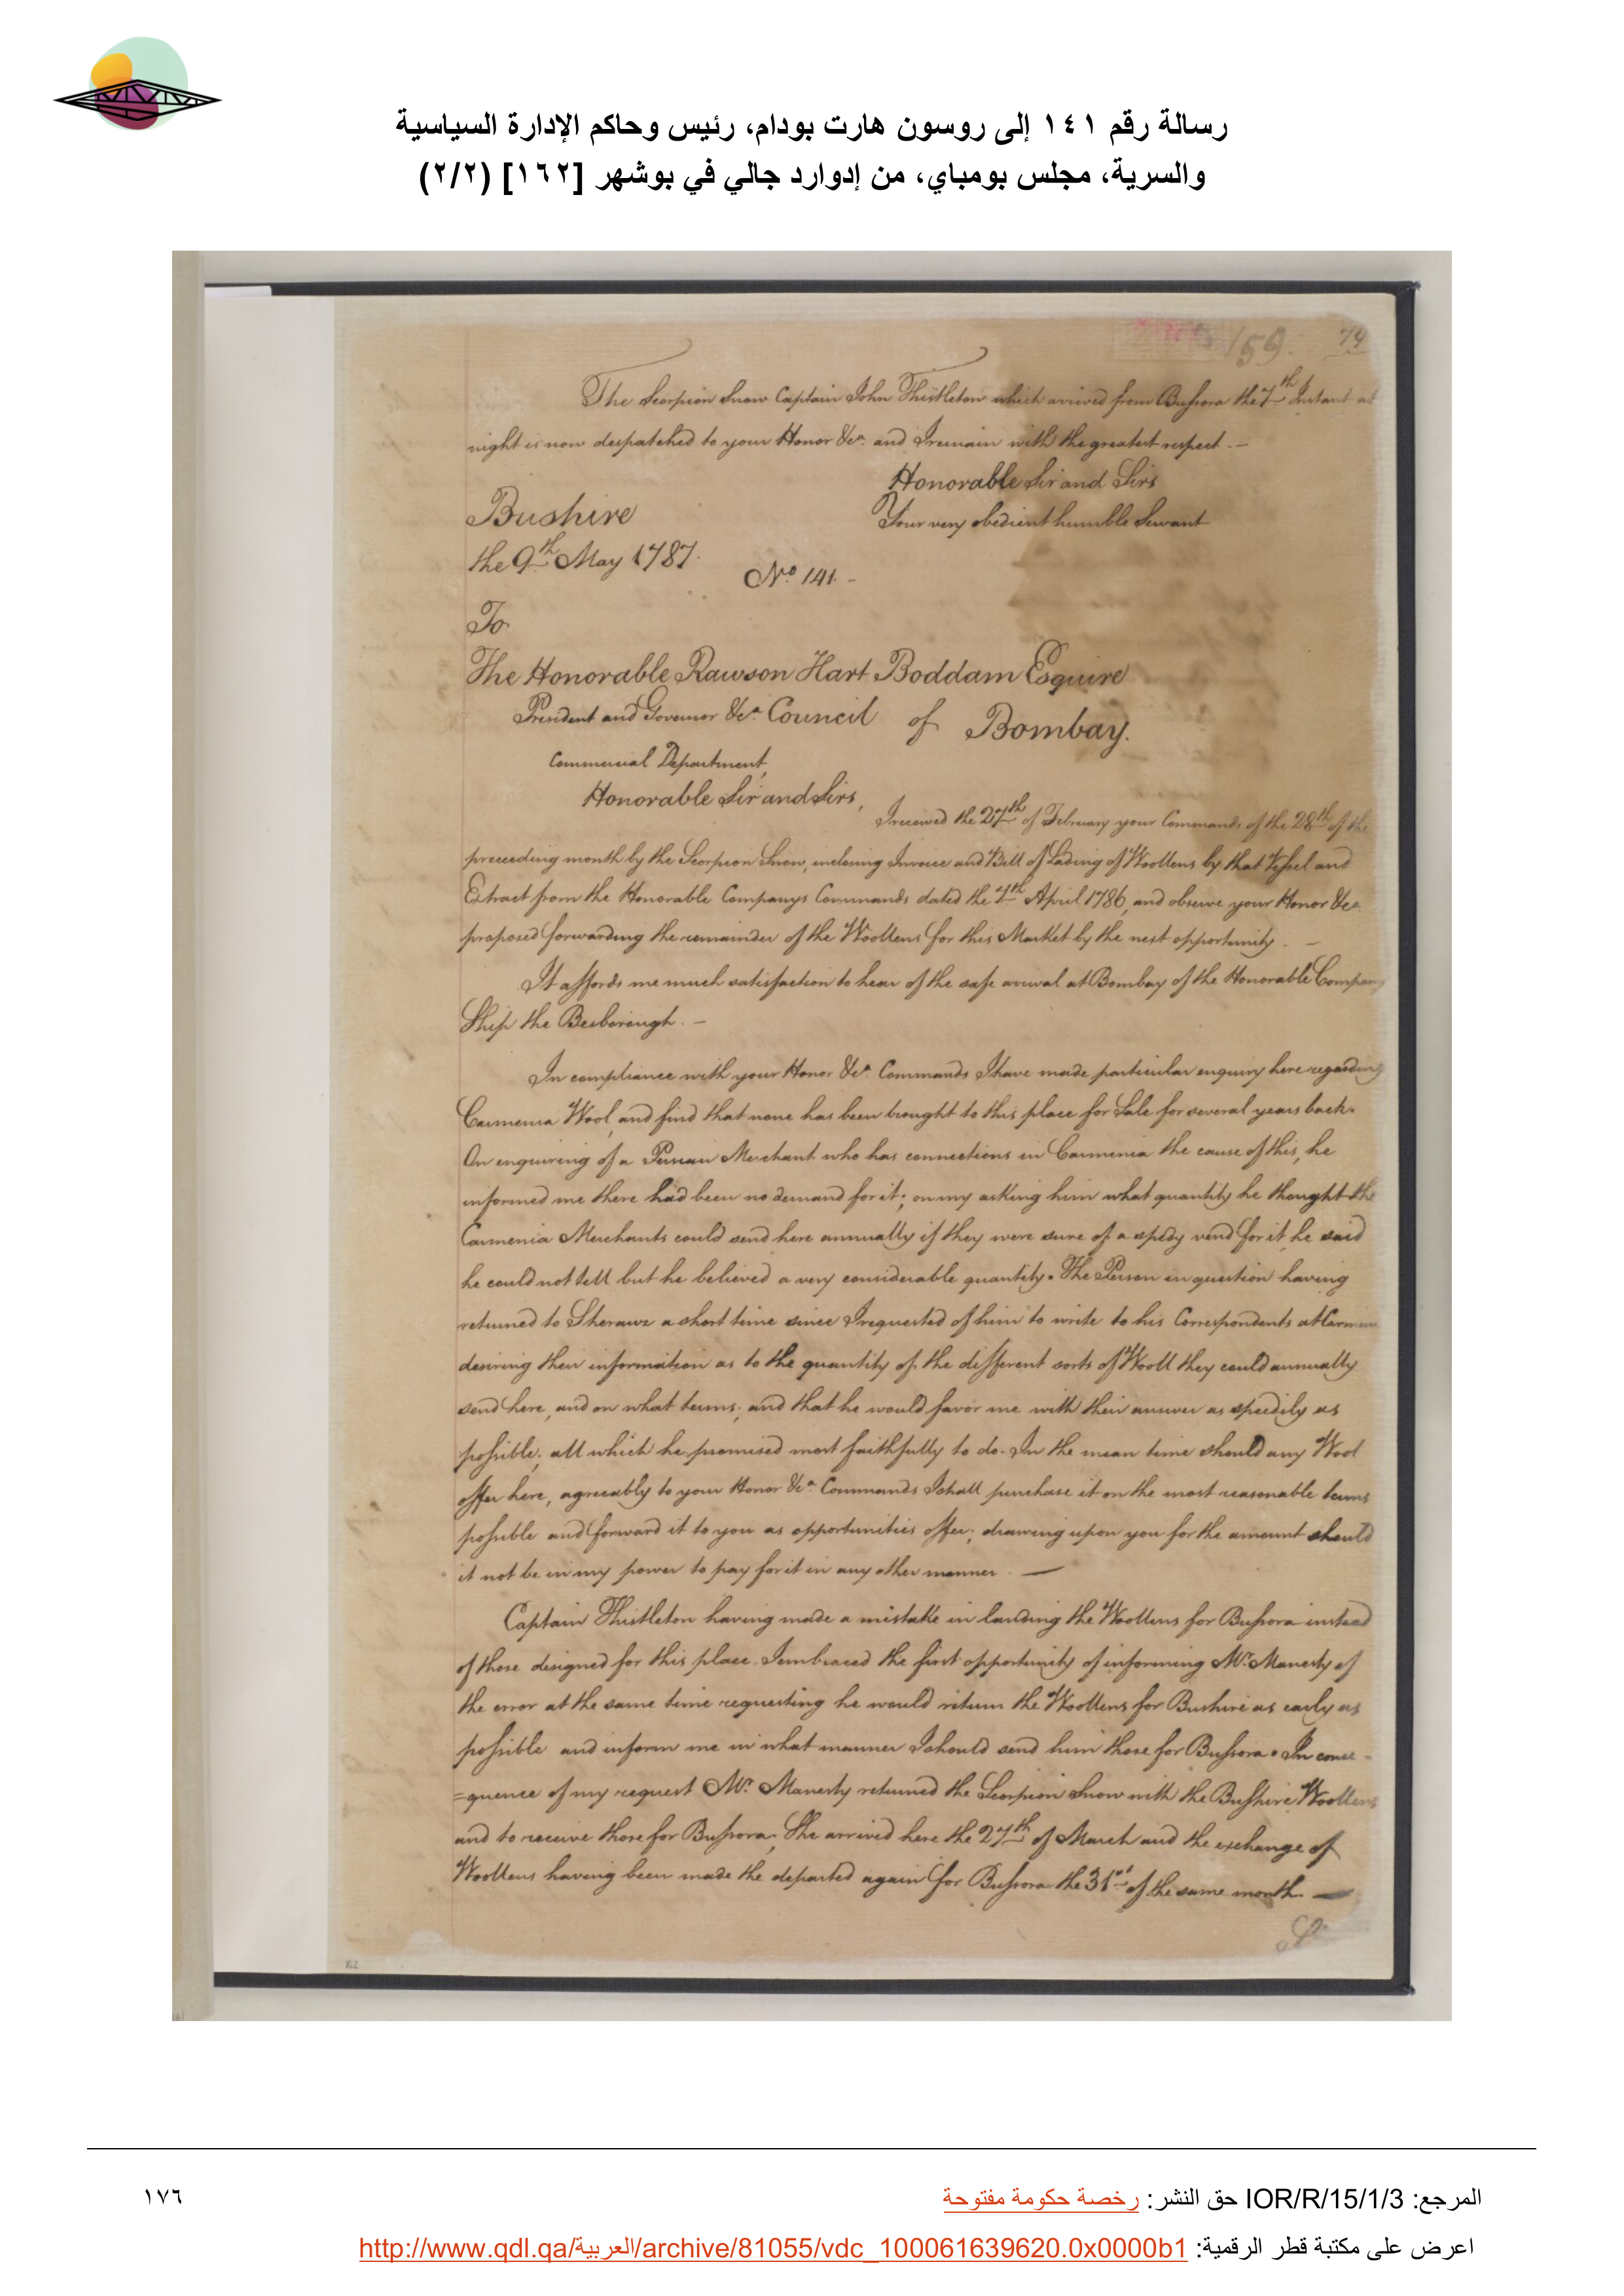 رسالة رقم ١٤١ إلى روسون هارت بودام، رئيس وحاكم الإدارة السياسية
والسرية، مجلس بومباي، من إدوارد جالي في بوشهر [١٦٢] (٢/٢)
159. 74
The Scorpion Snow Captain John Thistleton which arrived from Bussora the 7th Instant at
night is now despatched to your Honor &ca. and I remain with the greatest respect. -
Honorable Sir and Sirs
Your very obedient humble Servant
Bushire
the 9th May 1787.
No 141. -
To
The Honorable Rawson Hart Boddam Esquire
President and Governor &ca. Council of Bombay.
Commercial Department,
Honorable Sir and Sirs,
I received the 27th of February your Commands of the 28th of the
preceeding month by the Scorpion Snow, inclosing Invoice and Bill of Lading of Woollens by that Vessel and
Extract from the Honorable Companys Commands dated the 7th April 1786, and observe your Honor &ca.
proposed forwarding the remainder of the Woollens for this Market by the next opportunity. -
It affords me much satisfaction to hear of the safe arrival at Bombay of the Honorable Company
Ship the Besborough. -
In compliance with your Honor &ca. Commands I have made particular enquiry here regarding
Carmenia Wool, and find that none has been brought to this place for Sale for several years back.
On enquiring of a Persian Merchant who has connections in Carmenia the cause of this, he
informed me there had been no demand for it; on my asking him what quantity he thought the
Carmenia Merchants could send here annually if they were sure of a spedy vend for it, he said
he could not tell but he believed a very considerable quantity. The Person in question having
returned to Sherauz a short time since I requested of him to write to his Correspondents at
desiring their information as to the quantity of the different sorts of Wooll they could annually
send here, and on what terms; and that he would favor me with their answer as speedily as
possible; all which he promised most faithfully to do. In the mean time should any Wool
offer here, agreeably to your Honor &ca. Commands I shall purchase it on the most reasonable terms
possible and forward it to you as opportunities offer; drawing upon you for the amount should
it not be in my power to pay for it in any other manner. -
Captain Thistleton having made a mistake in landing the Woollens for Bussora instead
of those designed for this place. I embraced the first opportunity of informing Mr. Manesty of
the error at the same time requesting he would return the Woollens for Bushire as early as
possible and inform me in what manner I should send him those for Bussora. In conse -
=quence of my request Mr. Manesty returned the Scorpion Snow with the Bushire Woollens
and to receive those for Bussora; She arrived here the 27th of March and the exchange of
Woollens having been made she departed again for Bussora the 31st of the same month. -
١٧٦
المرجع: IOR/R/15/1/3 حق النشر: رخصة حكومة مفتوحة
اعرض على مكتبة قطر الرقمية: http://www.qdl.qa/العربية/archive/81055/vdc_100061639620.0x0000b1